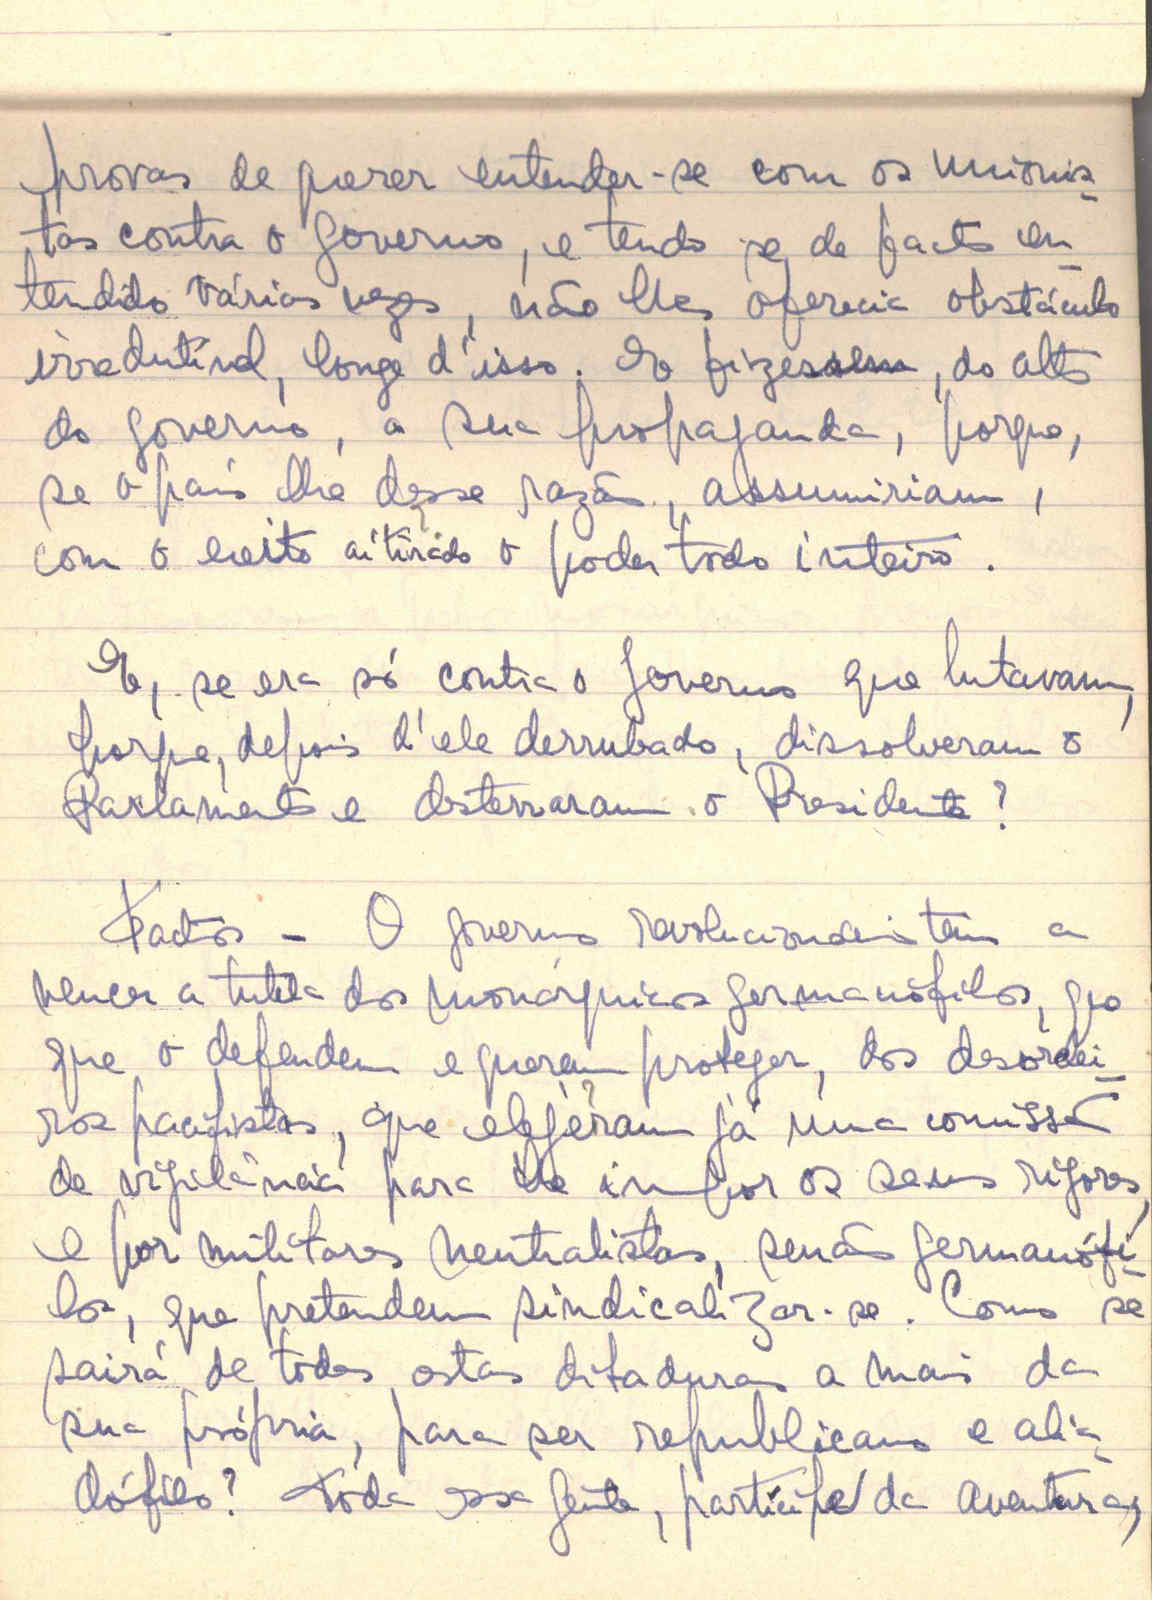 provas de querer entender-se com os unionis-
tas contra o governo, e tendo se, de facto en-
tendido várias vezes, não lhes oferecia obstáculo
irredutível, longe d'isso. E fizessem, do alto
do governo, a sua propaganda, porque,
se o país lhe desse razão, assumiriam,
com o o poder todo inteiro.
E, se era só contra o governo que lutavam,
porque, depois d'ele derrubado, dissolveram o
Parlamento e desterraram o Presidente?
Factos - O governo revolucionário tem a
vencer a tutela dos monárquicos germanófilos, que
que o defendem e querem proteger, dos desordei-
ros pacifistas, que elegeram já uma comissão
de vigilância para lhe impor os seus rigores,
e por militares neutralistas, senão germanófi-
los, que pretendem sindicalizar-se. Como se
sairá de todas estas ditaduras a mais da
sua própria, para ser republicano e alia-
dófilo? Toda essa gente, partícipe da aventura,